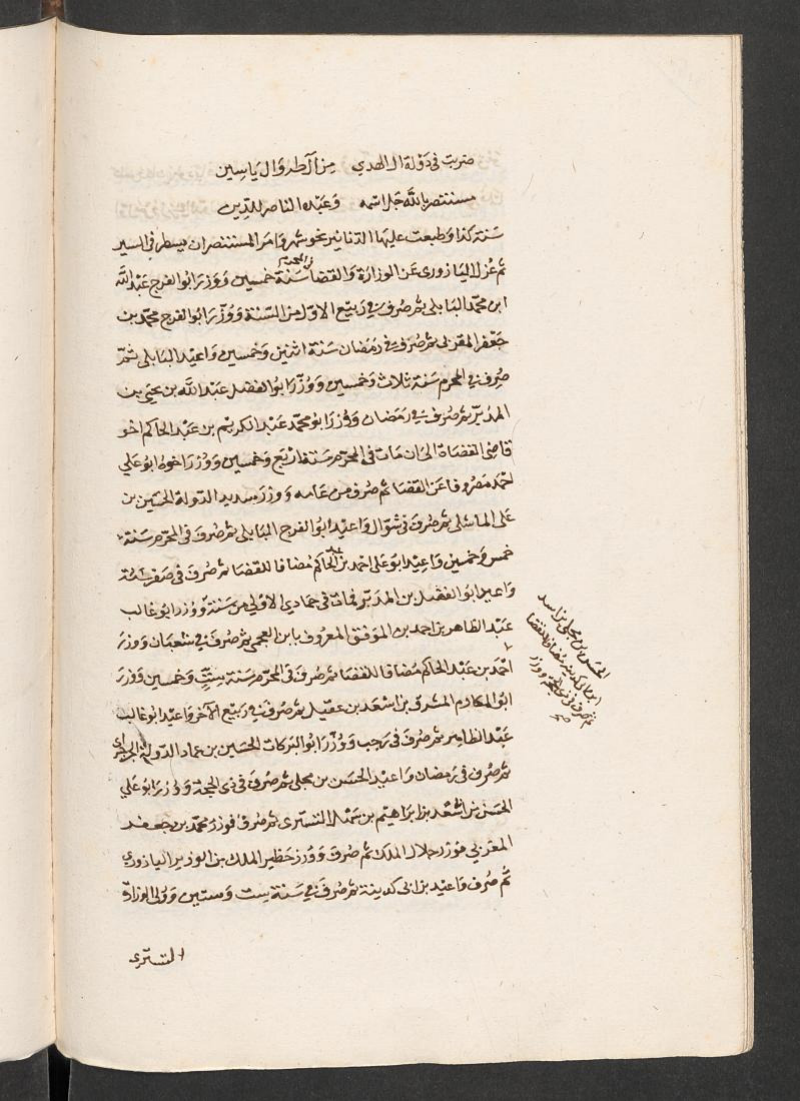 ضربت فى دولة ال الهدى من ال طه وال ياسين
مستنصر بالله جل اسمه وعبده الناصر للدين
سنة كذا وطبعت عليها الدنانير نحو شهر وامر المستنصر ان يسطر فى السير
ثم عزل اليازورى عن الوزارة والقضا فى المحرم سنة خمسين ووزر ابو الفرج عبد الله
ابن محمد البابلى ثم صرف فى ربيع الاول من السنة ووزر ابو الفرج محمد بن
جعفر المغربى ثم صرف فى رمضان سنة اثنين وخمسين واعيد البابلى ثم
صرف فى المحرم سنة ثلاث وخمسين ووزر ابو الفضل عبد الله بن يحيى بن
المدبر ثم صرف فى رمضان ووزر ابو محمد عبد الكريم بن عبد الحاكم اخو
قاضى القضاة الى ان مات فى المحرم سنة اربع وخمسين ووزر اخوه ابو على
احمد مصروفا عن القضا ثم صرف من عامه ووزر سديد الدولة الحسين بن
على الماشلى ثم صرف فى شوال واعيد ابو الفرج البابلى ثم صرف فى المحرم سنة
خمس وخمسين واعيد ابو على احمد بن عبد الحاكم مضافا للقضا ثم صرف فى صفر سنة
واعيد ابو الفضل بن المدبر فمات فى جمادى الاولى من سنة ووزر ابو غالب
عبد الظاهر بن احمد بن الموفق المعروف بابن العجمى ثم صرف فى شعبان ووزر
احمد بن عبد الحاكم مضافا للقضا ثم صرف فى المحرم سنة ست وخمسين ووزر
ابو المكارم المشرف بن اسعد بن عقيل ثم صرف فى ربيع الاخر واعيد ابو غالب
عبد الظاهر ثم صرف فى رجب ووزر ابو البركات الحسين بن عماد الدولة الجرجراى
ثم صرف فى رمضان واعيد الحسن بن مجلى ثم صرف فى ذى الحجة ووزر ابو على
الحسن بن اسعد بن ابراهيم بن سهل التسترى ثم صرف فوزر محمد بن جعفر
المغربى فوزر جلال الملك ثم صرف ووزر خطير الملك بن الوزير اليازورى
ثم صرف واعيد بن ابى كدينة ثم صرف فى سنة ست وستين وولى الوزارة
التسترى
الحسن بن مجلى بن اسد
ابن ابى كدينة مضافا للقضا
ثم صرف فى ذى الحجة ووزر
صح